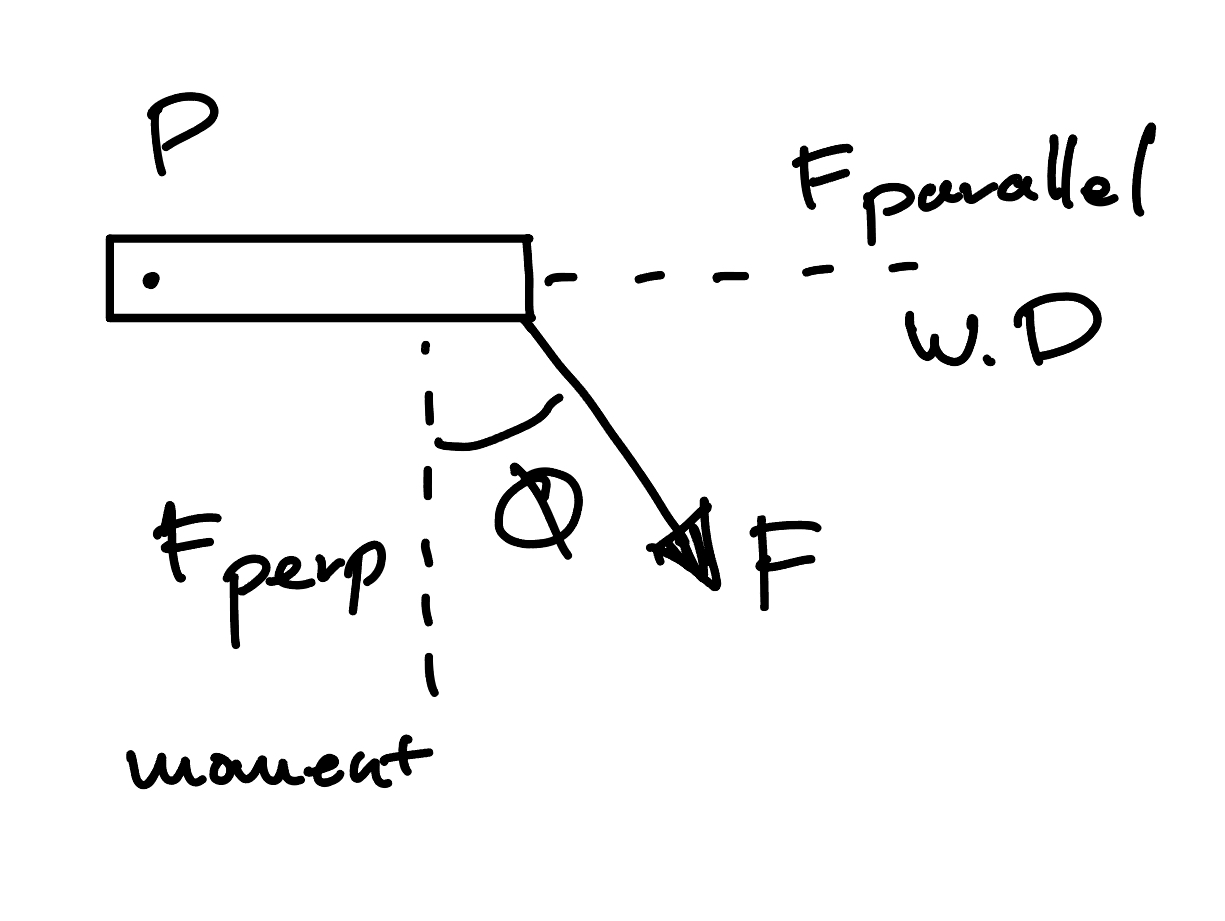 P
F parallel
W.D
F perp
Φ
F
moment